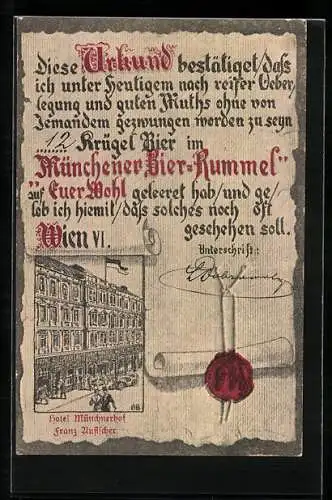 Diese Urkund bestätiget/daß
ich unter Heutigem nach reifer Ueber/
legung und guten Muths ohne von
Jemandem gezwungen worden zu seyn
12 Krügel Bier im
"Münchener Bier-Rummel"
auf "Euer Wohl geleeret hab/und ge/
lob ich hiemit/daß solches noch oft
geschehen soll.
Wien VI.
Unterschrift:
Hotel Münchnerhof
Franz Aufischer